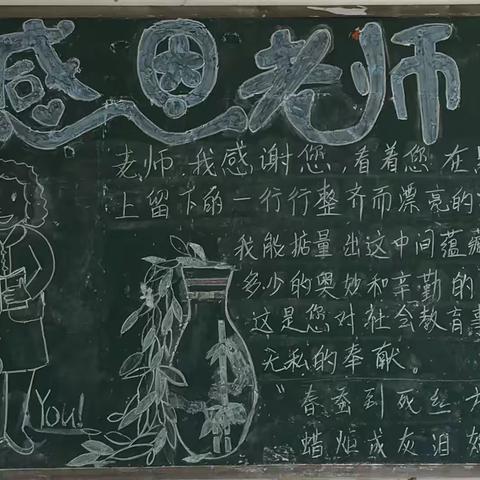 感恩老师
老师,我感谢您,看着您在
上留下的一行行整齐而漂亮的
我能掂量出这中间蕴藏
多少的奥妙和辛勤的
这是您对社会教育事
无私的奉献。
"春蚕到死丝方
蜡炬成灰泪
You!